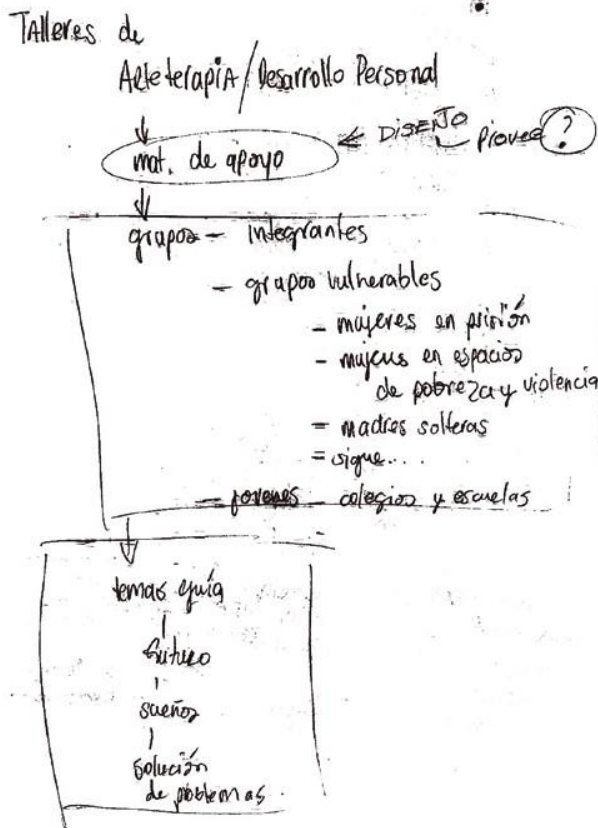 Talleres de
Arteterapia/Desarrollo Personal
mat. de apoyo
DISEÑO
provee ?
grupos - integrantes
- grupos vulnerables
- mujeres en prisión
- mujeres en espacios
de pobreza y violencia
= madres solteras
= sigue...
- jovenes - colegios y escuelas
temas guía
futuro
sueños
solución
de problemas.